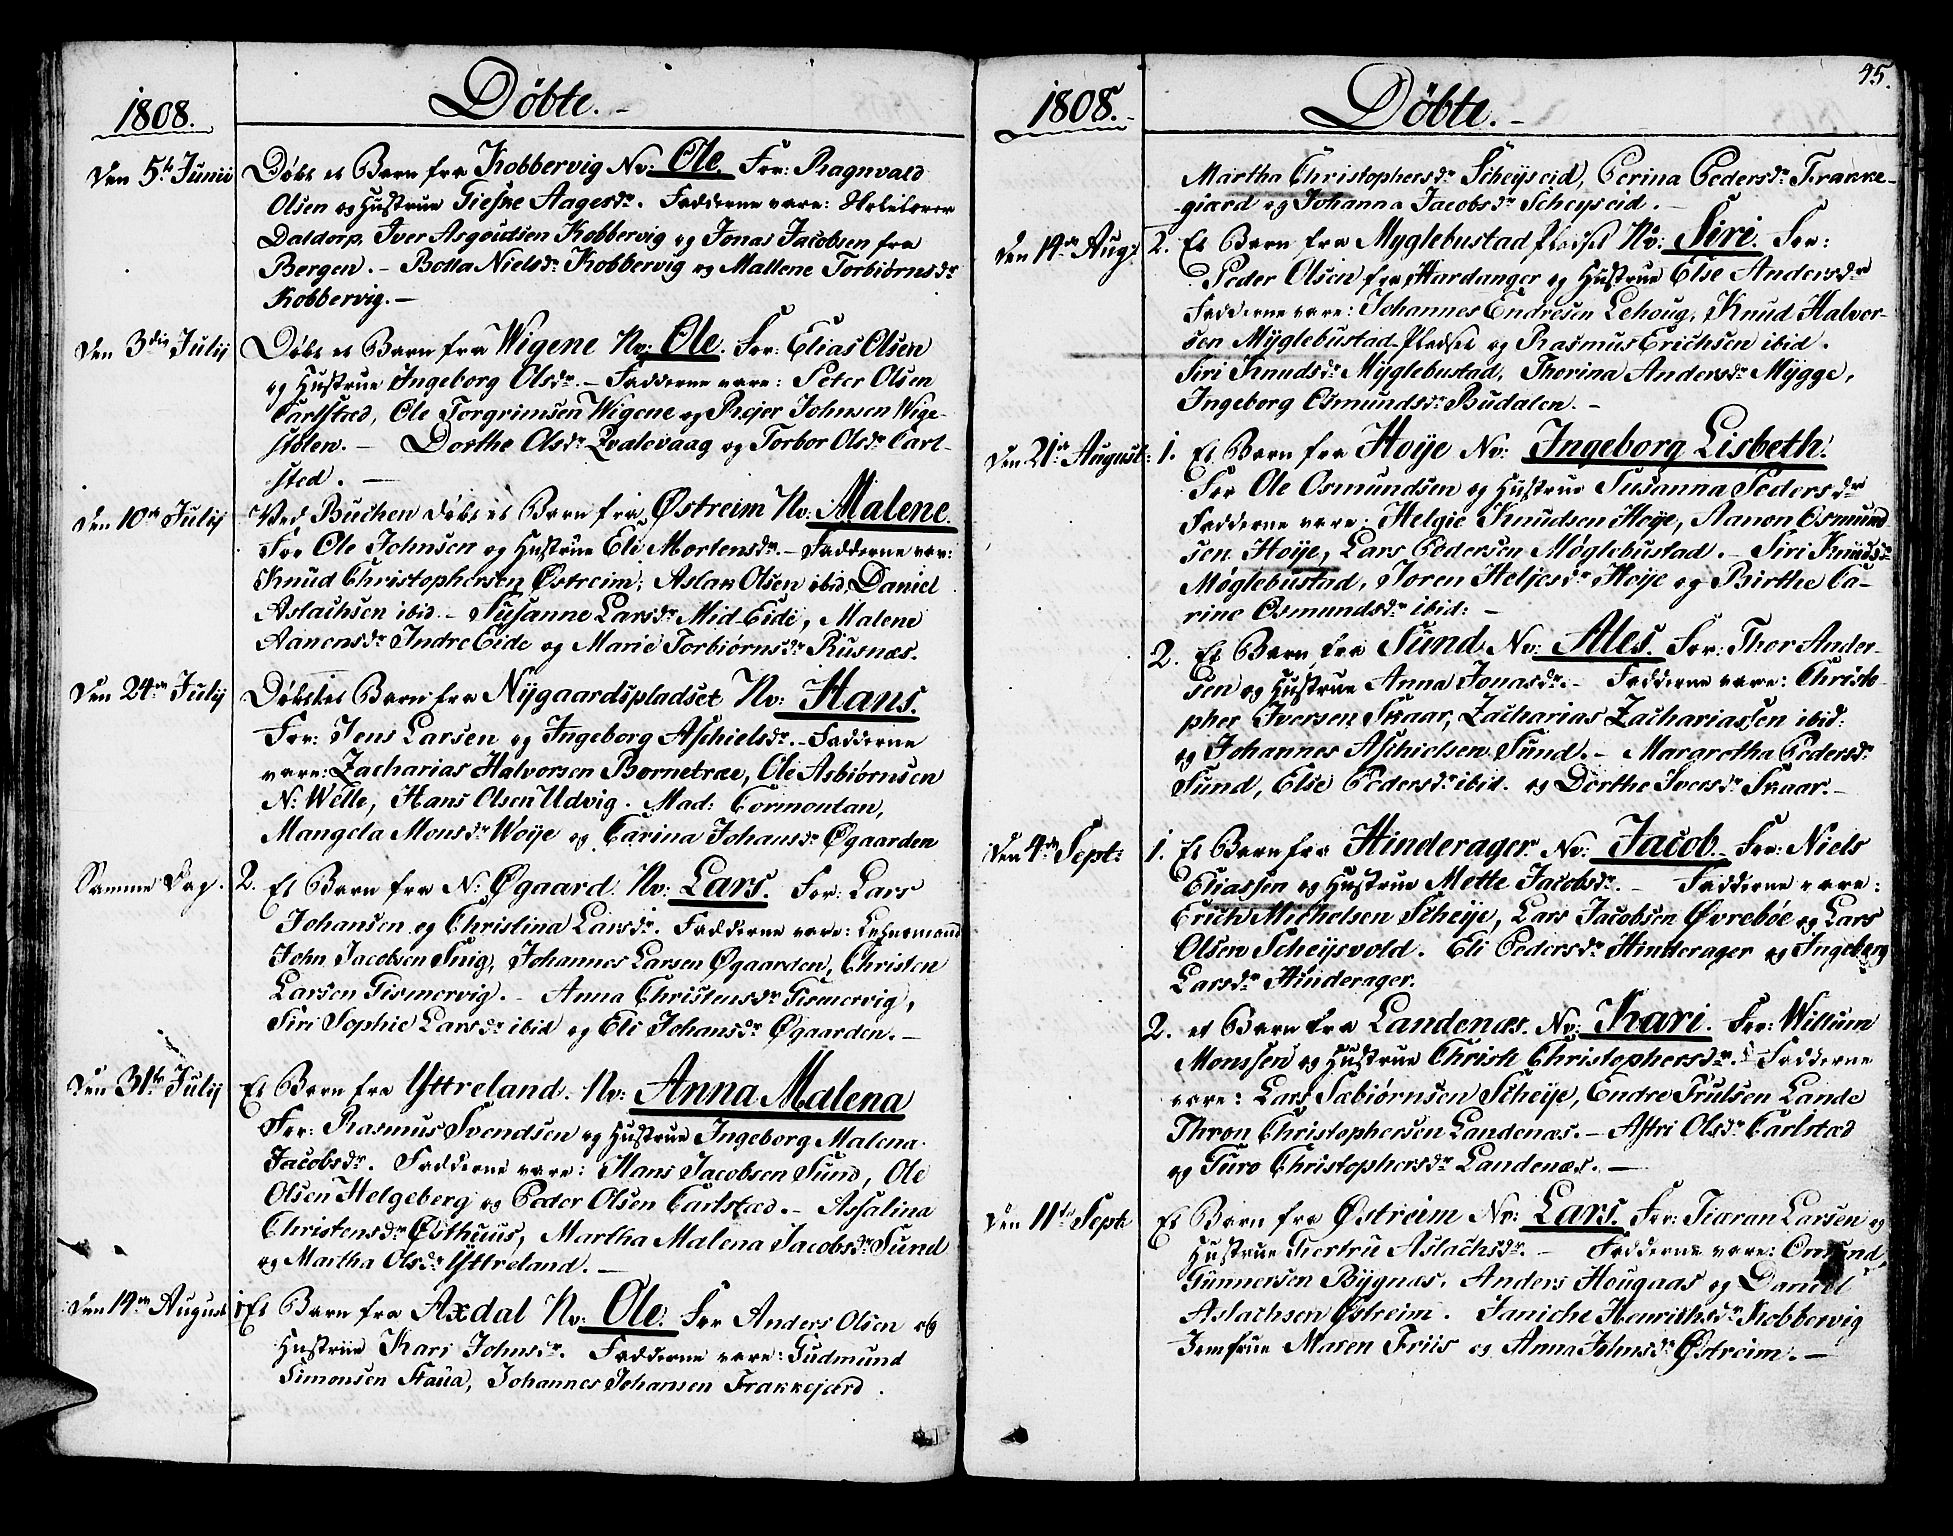 1808.
Döbte.
Den 5te Junii
Döbt et Barn fra Kobbervig Nv: Ole. For: Ragnvald
Olsen og Hustrue Gieske Aagesdr. Fadderne vare: Skolelærer
Daldorp, Iver Asgoudsen Kobbervig og Jonas Jacobsen fra
Bergen. - Bolla Nielsdr Kobbervig og Mallene Torbiörnsdr
Kobbervig. -
Den 3die Julij
Döbt et Barn fra Wigene Nv: Ole. For: Elias Olsen
og Hustrue Ingeborg Olsdr. - Fadderne vare: Peter Olsen
Carlstæd, Ole Torgrimsen Wigene og Prejer Johnsen Wige-
stölen. - Dorthe Olsdr Qvalevaag og Torbor Olsdr Carl-
sted. -
Den 10de Julij
Ved Buchen döbt et Barn fra Østreim Nv: Malene.
For Ole Johnsen og Hustrue Eli Mortensdr. - Fadderne var:
Knud Christophersen Østreim, Aslak Olsen ibid, Daniel
Aslachsen ibid. - Susanne Larsdr Mid-Eide, Malene
Aanensdr Indre Eide og Marie Torbiörnsdr Rusnæs.
Den 24de Julij
Döbt et Barn fra Nijgaardspladset Nv: Hans.
For: Jens Larsen og Ingeborg Aschielsdr. - Fadderne
vare: Zacharias Halvorsen Bornetræe, Ole Asbiörnsen
N: Welle, Hans Olsen Udvig. Mad: Cormontan,
Mangela Monsdr Woije og Carina Johansdr Øgaarden
Samme Dag.
2. Et Barn fra N: Øgaard Nv: Lars. For: Lars
Johansen og Christina Larsdr. Fadderne vare: Lehnsmand
John Jacobsen Snig, Johannes Larsen Øgaarden, Christen
Larsen Gismervig. - Anna Christensdr Gismervig,
Siri Sophie Larsdr ibid og Eli Johansdr Øgaarden. -
Den 31te Julij
Et Barn fra Yttreland. Nv: Anna Malena
For: Rasmus Svendsen og Hustrue Ingeborg Malena
Jacobsdr. Fadderne vare: Hans Jacobsen Sund, Ole
Olsen Helgeberg og Peder Olsen Carlstæd. - Assalina
Christensdr Østhuus, Martha Malena Jacobsdr Sund
og Martha Olsdr Yttreland. -
Den 14de August
1 Et Barn fra Axdal Nv: Ole. For Anders Olsen og
Hustrue Kari Johnsdr. Fadderne vare: Gudmund
Simonsen Staüa, Johannes Johansen Frakkejærd.
45.
1808.
Döbte.
Martha Christophersdr Scheijseid, Perina Pedersdr Frakke-
giærd og Johanna Jacobsdr Scheijseid. -
Den 14de Aug:
2. Et Barn fra Myglebustad Pladset Nv: Siri. For:
Peder Olsen fra Hardanger og Hustrue Else Andersdr
Fadderne vare: Johannes Endresen Lehoug, Knud Halvor-
sen Myglebustad Pladset og Rasmus Erichsen ibid.
Siri Knudsdr Myglebustad, Thorina Andersdr Mygge,
Ingeborg Osmundsdr Budalen. -
Den 21de August:
1. Et Barn fra Hoije Nv: Ingeborg Lisbeth.
For Ole Osmundsen og Hustrue Susanna Pedersdr
Fadderne vare: Helgie Knudsen Hoije, Aanon Osmund-
sen Hoije, Lars Pedersen Møglebustad. - Siri Knudsdr
Møglebustad, Joren Heljesdr Hoije og Birthe Ca-
rine Osmundsdr ibid: -
2. Et Barn fra Sund Nv: Ales. For: Thor Ander-
sen og Hustrue Anna Jonasdr. - Fadderne vare: Christo-
pher Iversen Skaar, Zacharias Zachariassen ibid:
og Johannes Aschielsen Sund. - Margretha Pedersdr
Sund, Else Pedersdr ibid. og Dorthe Iversdr Skaar. -
Den 4de Sept:
1. Et Barn fra Hinderager Nv: Jacob. For: Niels
Eliassen og Hustrue Mette Jacobsdr. - Fadderne vare:
Erich Michelsen Scheije, Lars Jacobsen Øvreböe og Lars
Olsen Scheijsvold. Eli Pedersdr Hinderager og Ingeborg
Larsdr Hinderager.
2. et Barn fra Landenæs. Nv: Kari. For: Willum
Monssen og Hustrue Christi Christophersdr. Fadderne
vare: Lars Sæbiörnsen Scheije, Endre Trulsen Lande
Thron Christophersen Landenæs. - Astri Olsdr Carlstæd
og Guro Christophersdr Landenæs. -
Den 11te Sept:
Et Barn fra Østreim Nv: Lars. For: Giæran Larsen og
Hustrue Giertru Aslachsdr. - Fadderne vare: Osmund
Gunnersen Bygnæs, Anders Hougaas og Daniel
Aslachsen Østreim. Janiche Henrichsdr Kobbervig
Jomfrue Maren Friis og Anna Johnsdr Østreim. -